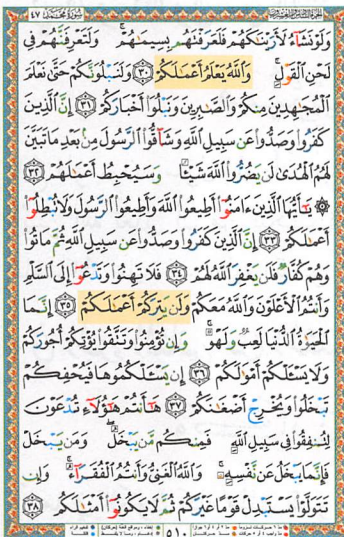 سُورَةُ مُحَمَّدٍ ٤٧
وَلَوْ نَشَآءُ لَأَرَيْنَٰكَهُمْ فَلَعَرَفْتَهُم بِسِيمَٰهُمْ ۚ وَلَتَعْرِفَنَّهُمْ فِى
لَحْنِ ٱلْقَوْلِ ۚ وَٱللَّهُ يَعْلَمُ أَعْمَٰلَكُمْ ﴿٣٠﴾ وَلَنَبْلُوَنَّكُمْ حَتَّىٰ نَعْلَمَ
ٱلْمُجَٰهِدِينَ مِنكُمْ وَٱلصَّٰبِرِينَ وَنَبْلُوَا۟ أَخْبَارَكُمْ ﴿٣١﴾ إِنَّ ٱلَّذِينَ
كَفَرُوا۟ وَصَدُّوا۟ عَن سَبِيلِ ٱللَّهِ وَشَآقُّوا۟ ٱلرَّسُولَ مِنۢ بَعْدِ مَا تَبَيَّنَ
لَهُمُ ٱلْهُدَىٰ لَن يَضُرُّوا۟ ٱللَّهَ شَيْـًٔا وَسَيُحْبِطُ أَعْمَٰلَهُمْ ﴿٣٢﴾
۞ يَٰٓأَيُّهَا ٱلَّذِينَ ءَامَنُوٓا۟ أَطِيعُوا۟ ٱللَّهَ وَأَطِيعُوا۟ ٱلرَّسُولَ وَلَا تُبْطِلُوٓا۟
أَعْمَٰلَكُمْ ﴿٣٣﴾ إِنَّ ٱلَّذِينَ كَفَرُوا۟ وَصَدُّوا۟ عَن سَبِيلِ ٱللَّهِ ثُمَّ مَاتُوا۟
وَهُمْ كُفَّارٌ فَلَن يَغْفِرَ ٱللَّهُ لَهُمْ ﴿٣٤﴾ فَلَا تَهِنُوا۟ وَتَدْعُوٓا۟ إِلَى ٱلسَّلْمِ
وَأَنتُمُ ٱلْأَعْلَوْنَ وَٱللَّهُ مَعَكُمْ وَلَن يَتِرَكُمْ أَعْمَٰلَكُمْ ﴿٣٥﴾ إِنَّمَا
ٱلْحَيَوٰةُ ٱلدُّنْيَا لَعِبٌ وَلَهْوٌ ۚ وَإِن تُؤْمِنُوا۟ وَتَتَّقُوا۟ يُؤْتِكُمْ أُجُورَكُمْ
وَلَا يَسْـَٔلْكُمْ أَمْوَٰلَكُمْ ﴿٣٦﴾ إِن يَسْـَٔلْكُمُوهَا فَيُحْفِكُمْ
تَبْخَلُوا۟ وَيُخْرِجْ أَضْغَٰنَكُمْ ﴿٣٧﴾ هَٰٓأَنتُمْ هَٰٓؤُلَآءِ تُدْعَوْنَ
لِتُنفِقُوا۟ فِى سَبِيلِ ٱللَّهِ فَمِنكُم مَّن يَبْخَلُ ۖ وَمَن يَبْخَلْ
فَإِنَّمَا يَبْخَلُ عَن نَّفْسِهِۦ ۚ وَٱللَّهُ ٱلْغَنِىُّ وَأَنتُمُ ٱلْفُقَرَآءُ ۚ وَإِن
تَتَوَلَّوْا۟ يَسْتَبْدِلْ قَوْمًا غَيْرَكُمْ ثُمَّ لَا يَكُونُوٓا۟ أَمْثَٰلَكُم ﴿٣٨﴾
٥١٠